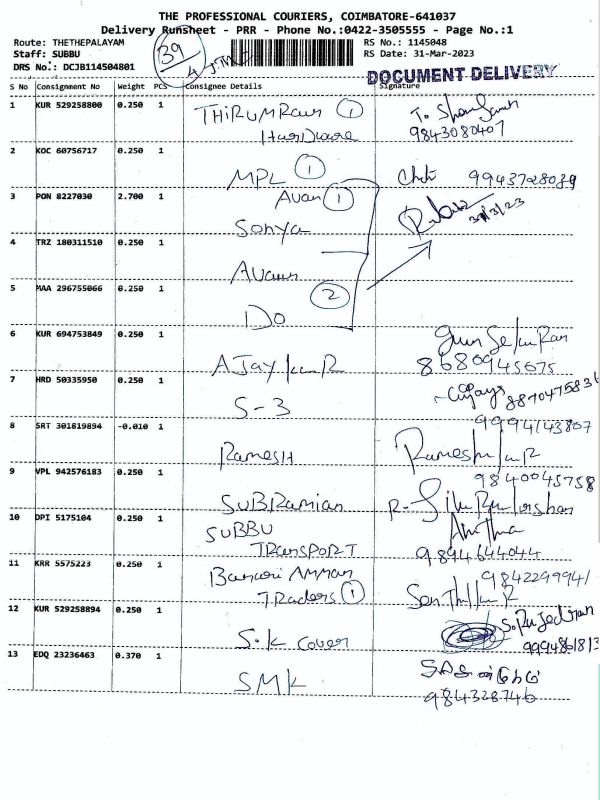 THE PROFESSIONAL COURIERS, COIMBATORE-641037
Delivery Runsheet - PRR - Phone No.:0422-3505555 - Page No.:1
Route: THETHEPALAYAM
RS No.: 1145048
Staff: SUBBU
RS Date: 31-Mar-2023
DRS No.: DCJB114504801
39/4
DOCUMENT DELIVERY
S No Consignment No Weight PCS Consignee Details Signature
1 KUR 529258800 0.250 1
THiRUMRaun 1 To
HarDware 9843080407
2 KOC 60756717 0.250 1
MPL 1 9943728089
3 PON 8227030 2.700 1
Avan 1
Sonya 31/3/23
4 TRZ 180311510 0.250 1
Avaun
5 MAA 296755066 0.250 1
2
Do
6 KUR 694753849 0.250 1
AJaykuR 8680945675
7 HRD 50335950 0.250 1
S-3 8870475836
8 SRT 301819894 -0.010 1
9994143807
RameSH RameshkuR
9 VPL 942576183 0.250 1
9840045758
SUBRamian
10 DPI 5175104 0.250 1
SUBBU
TRansPORT 9894644044
11 KRR 5575223 0.250 1
Bannari AMMan 9842299941
TRaders 1 SenthilkuR
12 KUR 529258894 0.250 1
S.K Cover 9994861813
13 EDQ 23236463 0.370 1
SMK 984328746